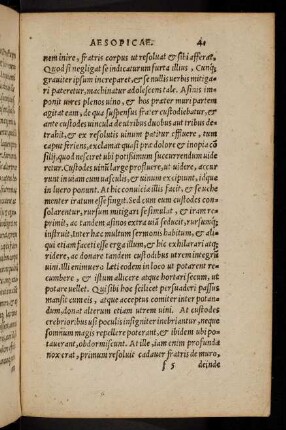 AESOPICAE. 41
nem inire, fratris corpus ut resoluat & sibi afferat.
Quod si negligat se indicaturum furta illius, Cunq́;
grauiter ipsum increparet, & se nullis uerbis mitiga-
ri pateretur, machinatur adolescens tale. Asinis im-
ponit utres plenos uino, & hos præter muri partem
agitat eam, de qua suspensus frater custodiebatur, &
ante custodes iuncula de utribus duobus aut tribus de-
trahit, & ex resolutis uinum patitur effluere, tum
caput feriens, exclamat quasi præ dolore & inopia cō
silij, quod nesciret ubi potissimum succurrendum uide
retur. Custodes uinū large profluere, ut uidere, accur
runt in uiam cum uasculis, & uinum excipiunt, idq́ue
in lucro ponunt. At hic conuicia illis facit, & se uehe
menter iratum esse fingit. Sed cum eum custodes con-
solarentur, rursum mitigari se simulat, & iram re-
primit, ac tandem asinos extra uiā seducit, rursumq́;
instruit. Inter hæc multum sermonis habitum, & ali-
qui etiam faceti esse ergo illum, & hic exhilarari atq́;
ridere, ac donare tandem custodibus utrem integrū
uini. Illi enimuero læti eodem in loco ut potarent re-
cumbere, & istum allicere atque hortari secum, ut
potare uellet. Qui sibi hoc scilicet persuaderi passus
mansit cum eis, atque acceptus comiter inter potan-
dum, donat alterum etiam utrem uini. At custodes
crebrioribus usi poculis insigniter inebriantur, neque
somnum magis repellere poterant, & ibidem ubi po-
tauerant, obdormiscunt. At ille, iam enim profunda
nox erat, primum resoluit cadauer fratris de muro,
f 5 deinde